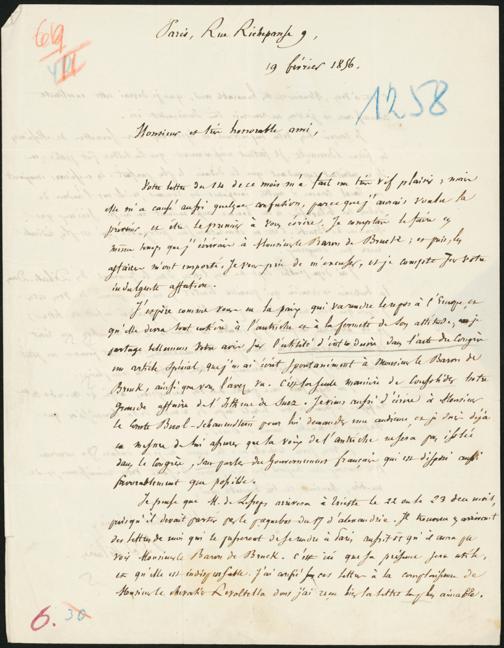 69
VIII
1258
Paris, Rue Richepanse 9,
19 février 1856.
Monsieur et très honorable ami,
Votre lettre du 14 de ce mois m'a fait un très vif plaisir; mais
elle m'a causé aussi quelque confusion, parceque j'aurais voulu la
prévenir, et être le premier à vous écrire. Je comptais le faire en
même temps que j'écrirais à Monsieur le Baron de Bruck; et puis, les
affaires m'ont emporté. Je vous prie de m'excuser, et je compte sur votre
indulgente affection.
J'espère comme vous en la paix qui va rendre le repos à l'Europe, et
qu'elle devra tout entière à l'autriche et à la fermeté de son attitude. Je
partage tellement votre avis sur l'utilité d'introduire dans l'acte du Congrès
un article spécial, que j'en ai écrit spontanément à Monsieur le Baron de
Bruck, ainsi que vous l'avez vu. C'est la seule manière de consolider notre
grande affaire de l'Isthme de Suez. Je viens aussi d'écrire à Monsieur
le Comte Buol-Schauenstein pour lui demander une audience, et je suis déjà
en mesure de lui assurer que la voix de l'autriche ne sera pas isolée
dans le Congrès, sans parler du Gouvernement français qui est disposé aussi
favorablement que possible.
Je pense que M. de Lesseps arrivera à Trieste le 22 ou le 23 de ce mois,
puisqu'il devait partir par le paquebot du 17 d'alexandrie. Il trouvera en arrivant
des lettres de moi qui le presseront de se rendre à Paris aussitôt qu'il aura pu
voir Monsieur le Baron de Bruck. C'est ici que sa présence sera utile,
et qu'elle est indispensable. J'ai confié ces lettres à la complaisance de
Monsieur le chevalier Revoltella dont j'ai reçu hier la lettre la plus aimable.
6. 30